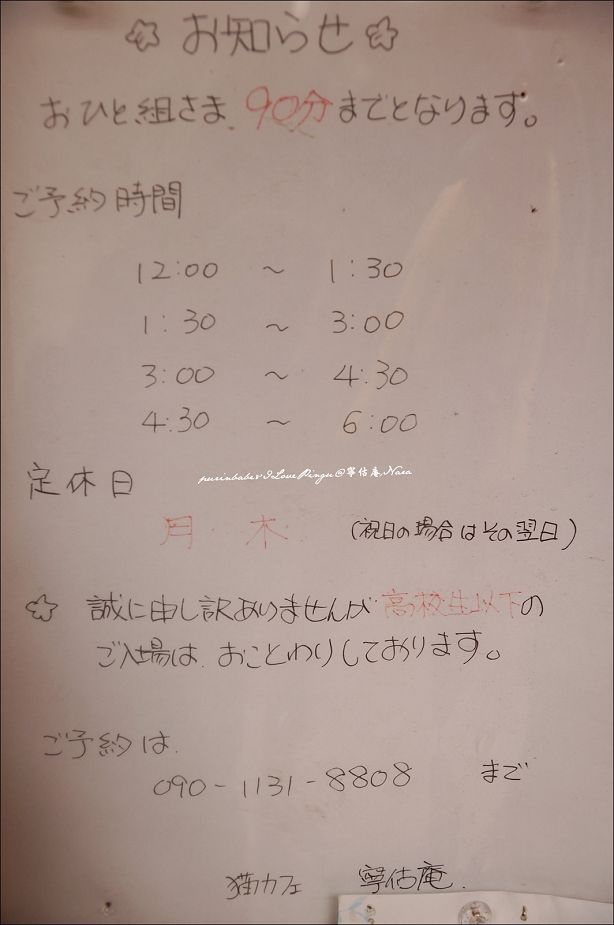 お知らせ
おひと組さま、90分までとなります。
ご予約時間
12:00 ～ 1:30
1:30 ～ 3:00
3:00 ～ 4:30
4:30 ～ 6:00
purinbabe&ILovePingu@寧估庵,Nara
定休日
月・木 (祝日の場合はその翌日)
誠に申し訳ありませんが高校生以下の
ご入場は、おことわりしております。
ご予約は
090-1131-8808 まで
猫カフェ 寧估庵